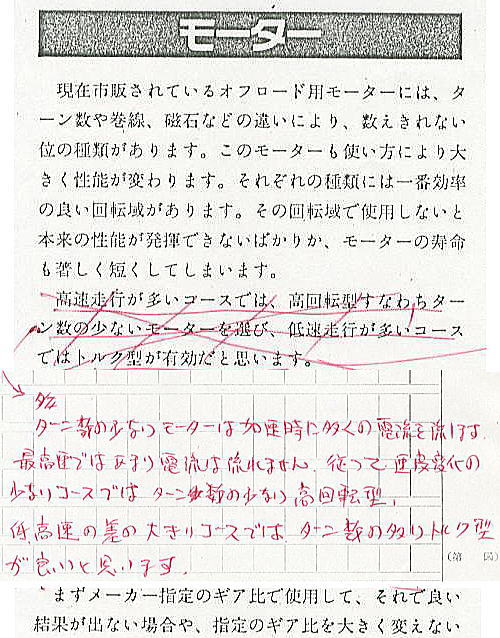 モーター
現在市販されているオフロード用モーターには、タ
ーン数や巻線、磁石などの違いにより、数えきれない
位の種類があります。このモーターも使い方により大
きく性能が変わります。それぞれの種類には一番効率
の良い回転域があります。その回転域で使用しないと
本来の性能が発揮できないばかりか、モーターの寿命
も著しく短くしてしまいます。
高速走行が多いコースでは、高回転型すなわちター
ン数の少ないモーターを選び、低速走行が多いコース
ではトルク型が有効だと思います。
ターン数の少ないモーターは加速時に多くの電流を流しますが
最高速ではあまり電流は流れません。従って速度変化の
少ないコースではターン数の少ない高回転型、
低高速の差の大きいコースでは、ターン数の多いトルク型
が良いと思います。
(第 図)
まずメーカー指定のギア比で使用して、それで良い
結果が出ない場合や、指定のギア比を大きく変えない